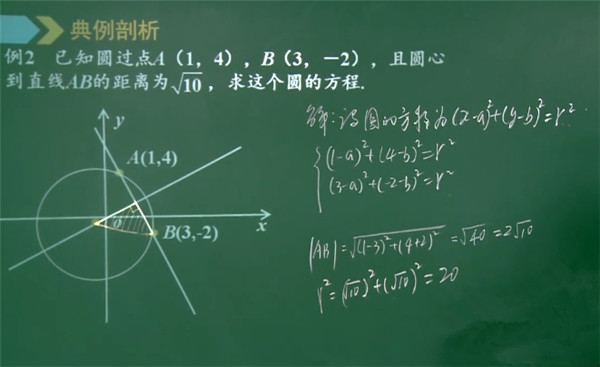 典例剖析
例2 已知圆过点A（1，4），B（3，－2），且圆心
到直线AB的距离为√10，求这个圆的方程.
y
A(1,4)
o
B(3,-2)
x
解：设圆的方程为(x-a)²+(y-b)²=r².
(1-a)²+(4-b)²=r²
(3-a)²+(-2-b)²=r²
|AB|=√(1-3)²+(4+2)² =√40=2√10
r²=(√10)²+(√10)²=20